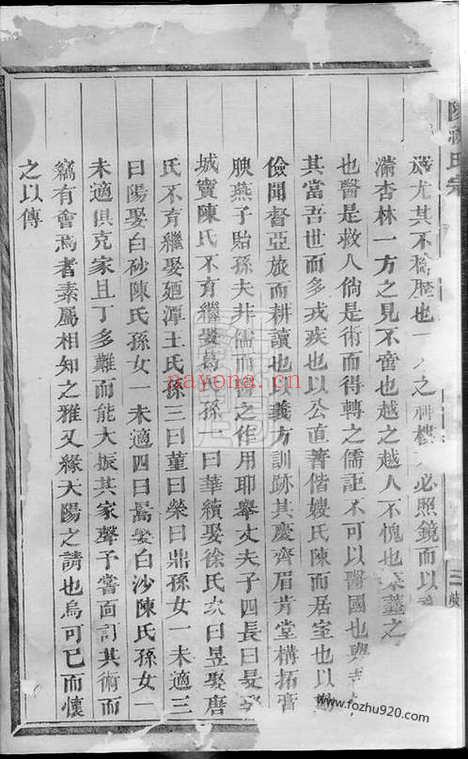 施尤其不 也 之 樓 必照鏡而以
滿杏林一方之見不啻也越之越人不愧也 蓋之
也醫是救人倘是術而得轉之儒詎不可以醫國也與
其當吾世而多戎疾也以公直著偕嫂氏陳而居室也以勤
儉聞督亞旅而耕讀也以義方訓跡其慶齊眉肯堂構拓膏
腴燕子貽孫夫非儒而 之作用耶舉丈夫子四長曰晟娶
城竇陳氏不育繼娶葛氏孫一曰華續娶徐氏次曰昱娶唐
氏不育繼娶 潭王氏孫三曰菫曰榮曰鼎孫女一未適三
曰陽娶白砂陳氏孫女一未適四曰暠娶白沙陳氏孫女一
未適俱克家且丁多難而能大振其家聲予嘗面訂其術而
竊有會焉者素屬相知之雅又緣大陽之請也烏可已而懷
之以傳
氏宗
三
nayona.cn
www.fozhu920.com